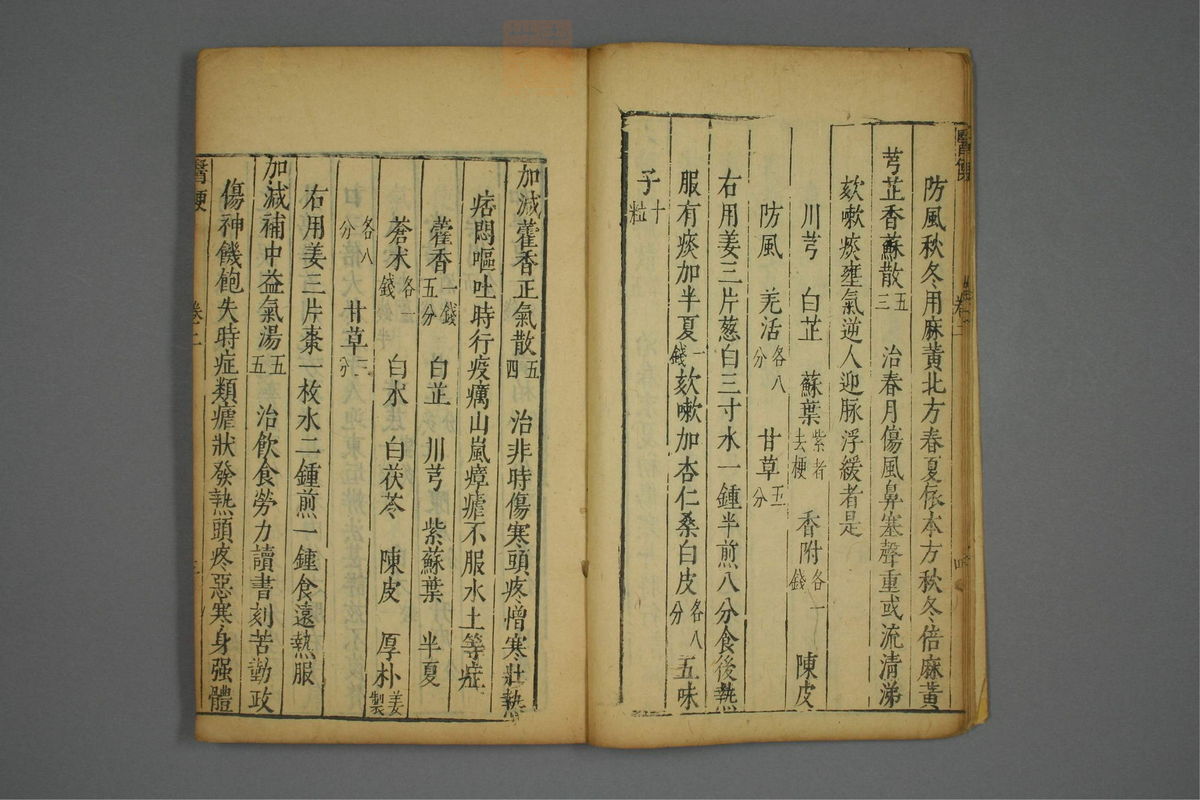 防風秋冬用麻黃北方春夏依本方秋冬倍麻黃
芎芷香蘇散 五三 治春月傷風鼻塞聲重或流清涕
欬嗽痰壅氣逆人迎脉浮緩者是
川芎 白芷 蘇葉 紫者去梗 香附 各一錢 陳皮
防風 羌活 各八分 甘草 五分
右用姜三片葱白三寸水一鍾半煎八分食後熱
服有痰加半夏 一錢 欬嗽加杏仁桑白皮 各八分 五味
子 十粒
加減藿香正氣散 五四 治非時傷寒頭疼憎寒壯熱
痞悶嘔吐時行疫癘山嵐瘴瘧不服水土等症
藿香 一錢五分 白芷 川芎 紫蘇葉 半夏
蒼术 各一錢 白术 白茯苓 陳皮 厚朴 姜製
各八分 甘草 三分
右用姜三片棗一枚水二鍾煎一鍾食遠熱服
加減補中益氣湯 五五 治飲食勞力讀書刻苦勤政
傷神饑飽失時症類瘧狀發熱頭疼惡寒身强體
醫便 卷二